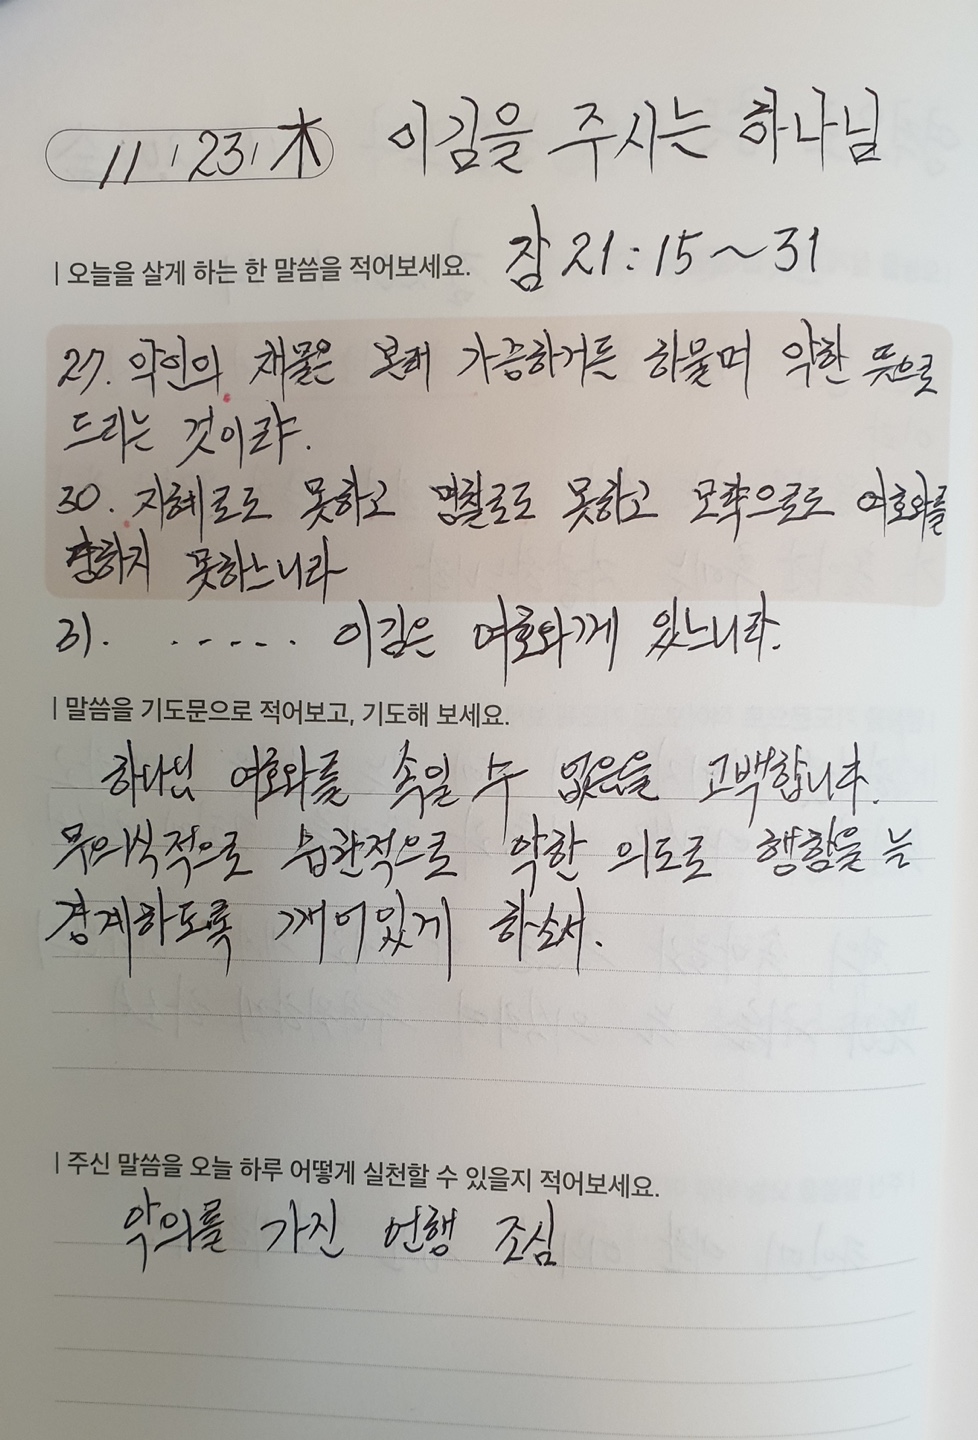 11 23 木 이김을 주시는 하나님
오늘을 살게 하는 한 말씀을 적어보세요. 잠 21:15~31
27. 악인의 재물은 본래 가증하거든 하물며 악한 뜻으로
드리는 것이랴.
30. 지혜로도 못하고 명철로도 못하고 모략으로도 여호와를
당하지 못하느니라
31. ····· 이김은 여호와께 있느니라.
말씀을 기도문으로 적어보고, 기도해 보세요.
하나님 여호와를 속일 수 없음을 고백합니다.
무의식적으로 습관적으로 악한 의도로 행함을 늘
경계하도록 깨어있게 하소서.
주신 말씀을 오늘 하루 어떻게 실천할 수 있을지 적어보세요.
악의를 가진 언행 조심